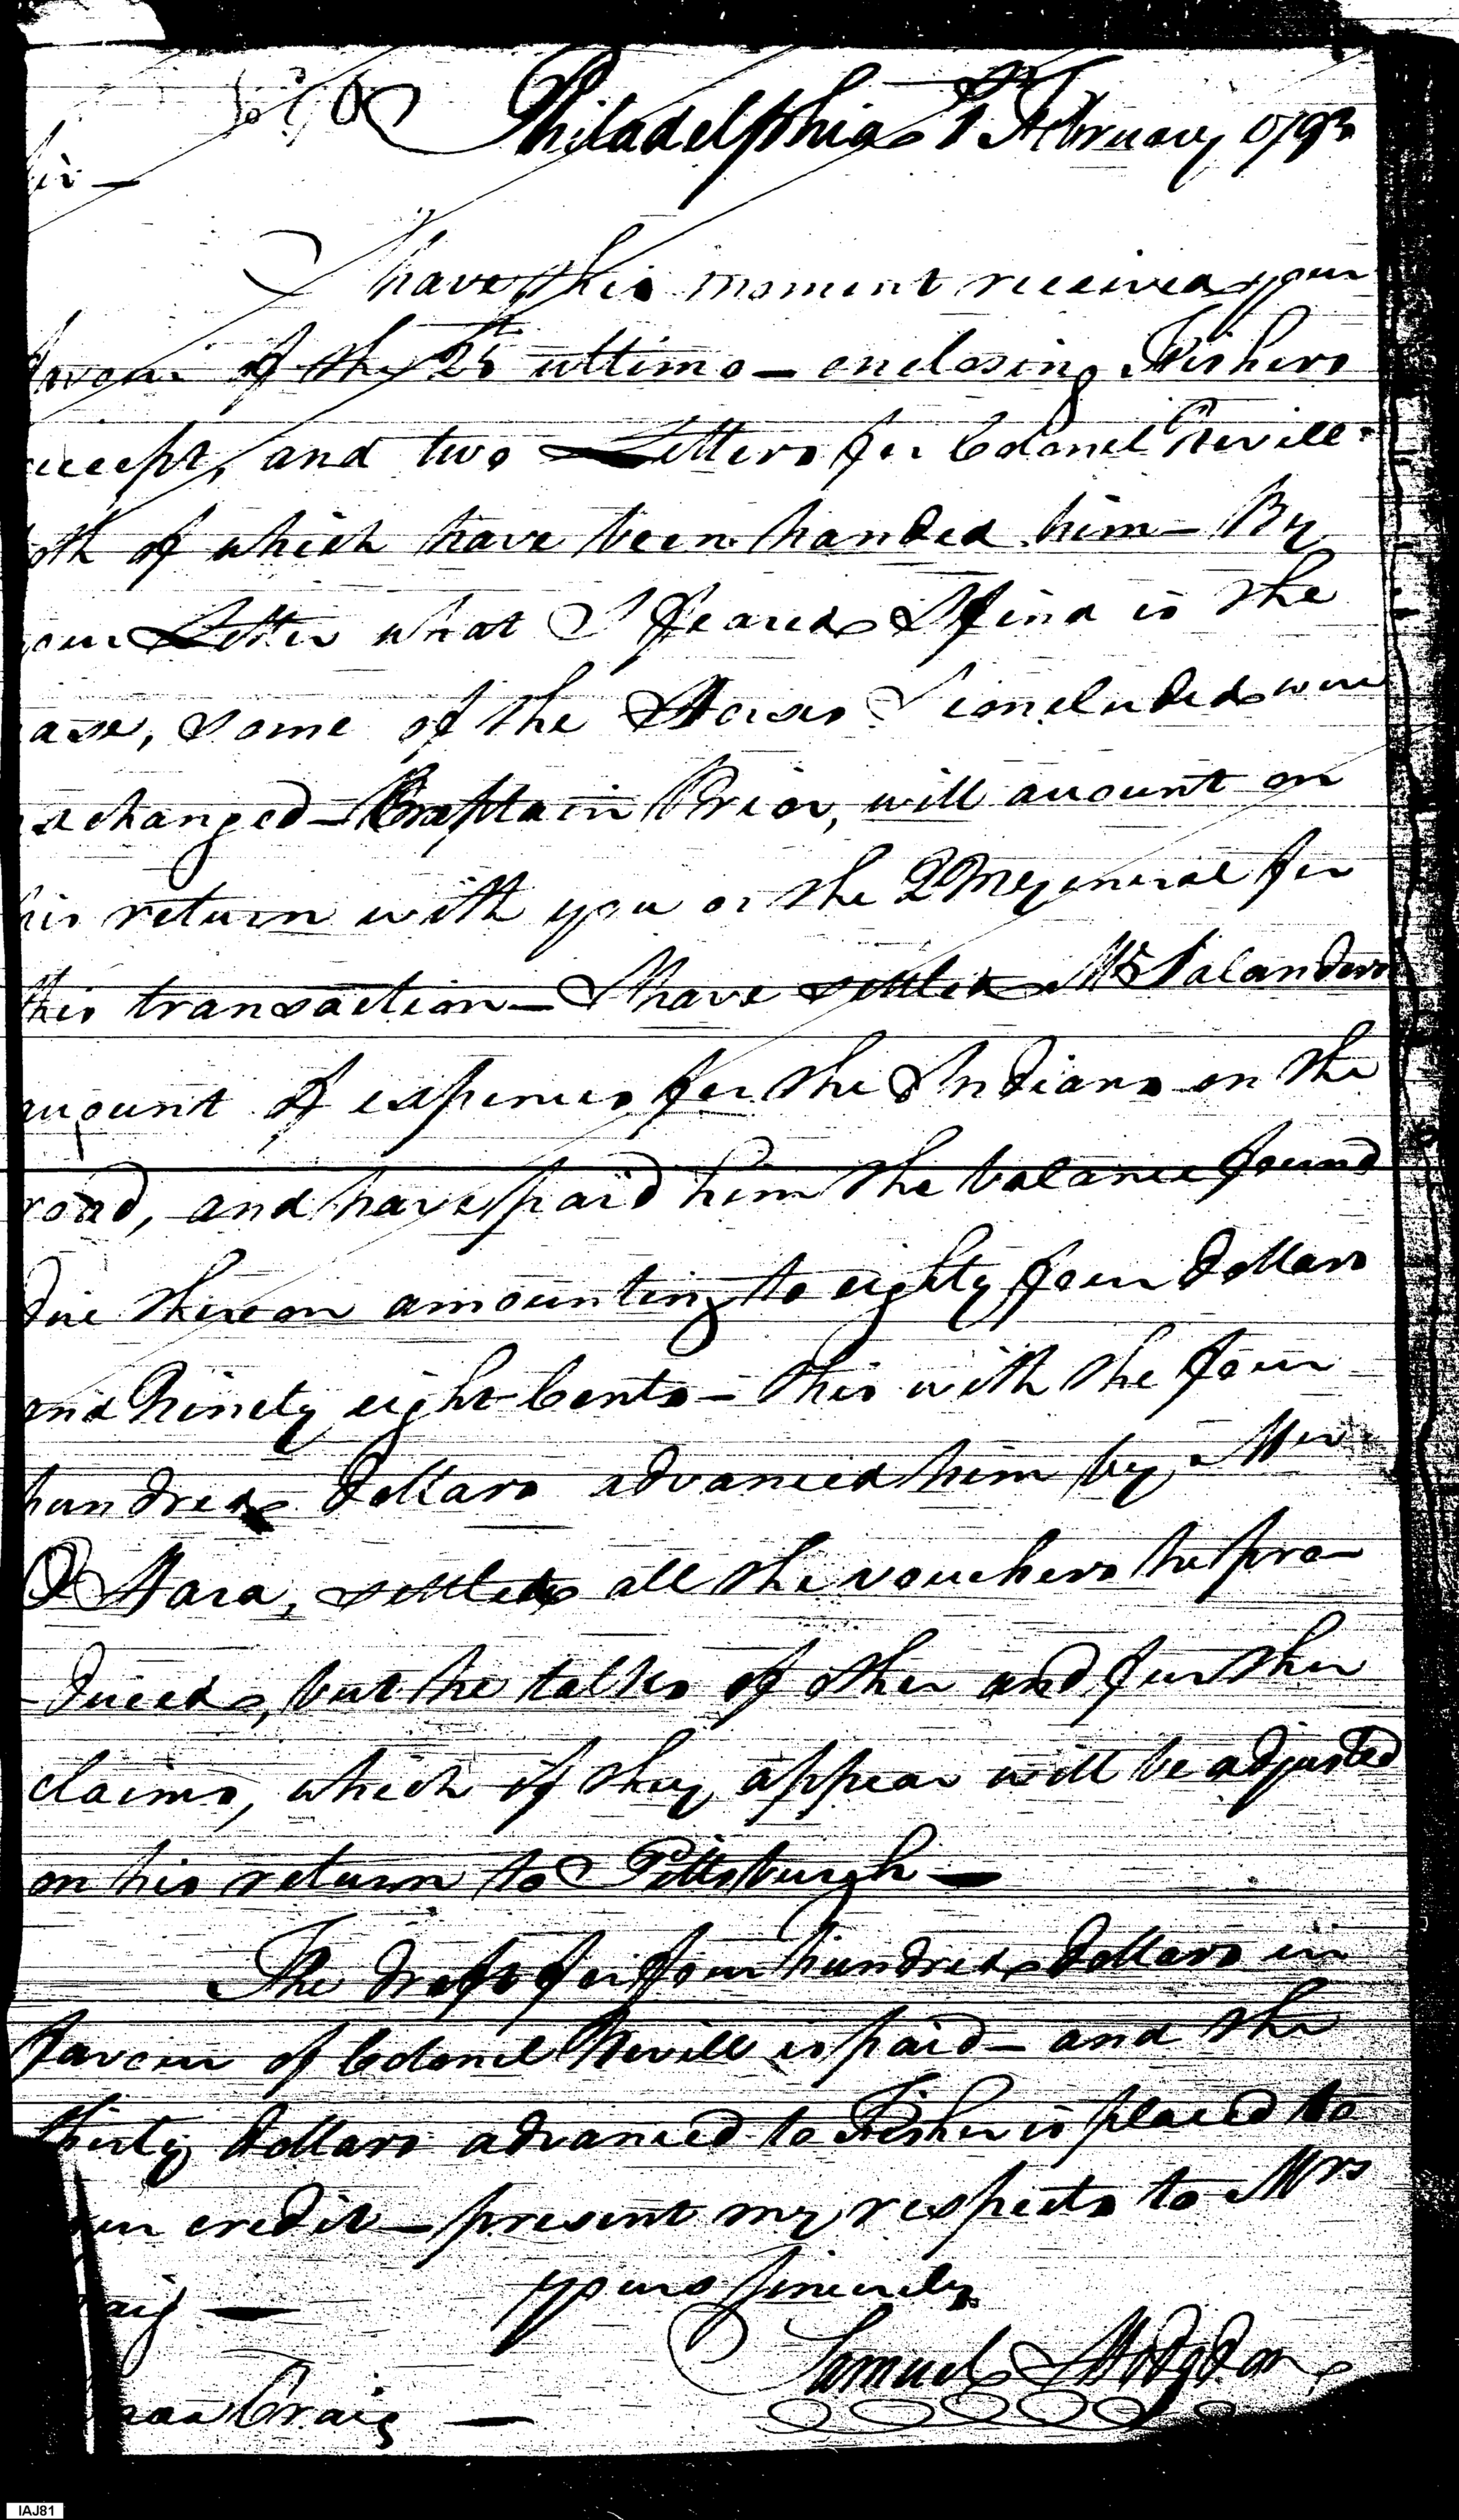 Philadelphia 1st February 1793
Sir —
I have this moment received your
favour of the 25th ultimo — enclosing Fishers
receipt, and two Letters for Colonel Nevill
both of which have been handed him — By
your Letter what I feared I find is the
case, some of the Horses I concluded were
exchanged — Captain Prior, will account on
his return with you or the 2 M general for
this transaction — I have settled Mr Salanders
account of expences for the Indians on the
road, and have paid him the balance found
due thereon amounting to eighty four dollars
and Ninety eight Cents — this with the four
hundred dollars advanced him by Mr
O Hara, settled all the vouchers he pro-
-duced, but he talks of other and further
claims, which if they appear will be adjusted
on his return to Pittsburgh —
The draft for four hundred dollars in
favour of Colonel Nevill is paid — and the
thirty dollars advanced to Fisher is placed to
your credit — present my respects to Mrs
Craig —
yours sincerely
Samuel Hodgdon
Isaac Craig —
IAJ81